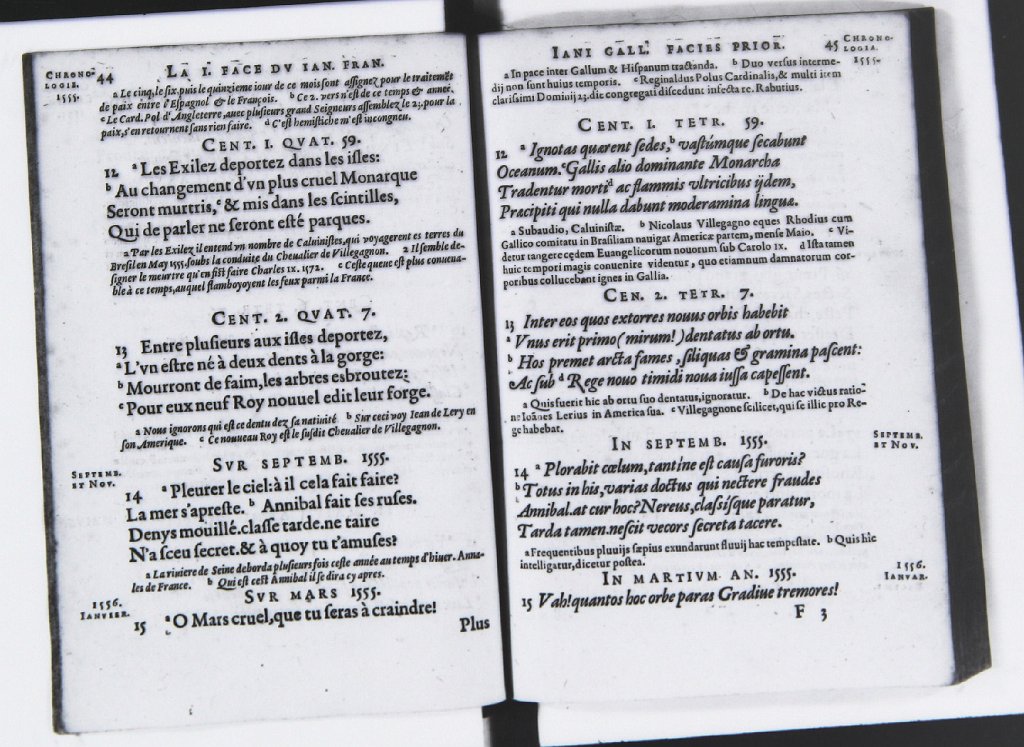 CHRONO-
LOGIE.
1555.
44 LA I. FACE DV IAN. FRAN.
a Le cinq, le six, puis le quinziéme iour de ce mois sont assignez pour le traitemẽt
de paix entre l'Espagnol & le François. b Ce 2. vers n'est de ce temps & annéé.
c Le Card. Pol d'Angleterre, auec plusieurs grand Seigneurs assemblez le 23. pour la
paix, s'en retournent sans rien faire. d C'est hemistiche m'est incongneu.
CENT. I. QVAT. 59.
12 a Les Exilez deportez dans les isles:
b Au changement d'vn plus cruel Monarque
Seront murtris, c & mis dans les scintilles,
Qui de parler ne seront esté parques.
a Par les Exilez il entend vn nombre de Caluinistes, qui voyagerent es terres du
Bresil en May 1555. soubs la conduite du Cheualier de Villegagnon. 2 Il semble de-
signer le meurtre qu'en fist faire Charles IX. 1572. c Ceste queue est plus conuena-
ble à ce temps, auquel flamboyoyent les feux parmi la France.
CENT. 2. QVAT. 7.
13 Entre plusieurs aux isles deportez,
a L'vn estre né à deux dents à la gorge:
b Mourront de faim, les arbres esbroutez:
c Pour eux neuf Roy nouuel edit leur forge.
a Nous ignorons qui est ce dentu dez sa natiuité b Sur ceci voy Iean de Lery en
son Amerique. c Ce nouueau Roy est le susdit Cheualier de Villegagnon.
SVR SEPTEMB. 1555.
SEPTEMB.
ET NOV.
14 a Pleurer le ciel: à il cela fait faire?
La mer s'apreste. b Annibal fait ses ruses.
Denys mouillé. classe tarde. ne taire
N'a sceu secret. & à quoy tu t'amuses?
a La riuiere de Seine deborda plusieurs fois ceste année au temps d'hiuer. Anna-
les de France. b Qui est cest Annibal il se dira cy apres.
SVR MARS 1555.
1556.
IANVIER.
15 a O Mars cruel, que tu seras à craindre!
Plus
IANI GALL. FACIES PRIOR. 45
CHRONO-
LOGIA.
1555.
a In pace inter Gallum & Hispanum tractanda. b Duo versus interme-
dij non sunt huius temporis. c Reginaldus Polus Cardinalis, & multi item
clarissimi Domini, 23. die congregati discedunt infecta re. Rabutius.
CENT. I. TETR. 59.
12 a Ignotas quærent sedes, b vastúmque secabunt
Oceanum. c Gallis alio dominante Monarcha
Tradentur morti d ac flammis vltricibus ijdem,
Præcipiti qui nulla dabunt moderamina linguæ.
a Subaudio, Caluinistæ. b Nicolaus Villegagno eques Rhodius cum
Gallico comitatu in Brasiliam nauigat Americæ partem, mense Maio. c Vi-
detur tangere cędem Euangelicorum nouorum sub Carolo IX. d Ista tamen
huic tempori magis conuenire videntur, quo etiamnum damnatorum cor-
poribus collucebant ignes in Gallia.
CEN. 2. TETR. 7.
13 Inter eos quos extorres nouus orbis habebit
a Vnus erit primo (mirum!) dentatus ab ortu.
b Hos premet arcta fames, siliquas & gramina pascent:
Ac sub d Rege nouo timidi noua iussa capessent.
a Quis fuerit hic ab ortu suo dentatus, ignoratur. b De hac victus ratio-
ne Ioānes Lerius in America sua. c Villegagnone scilicet, qui se illic pro Re-
ge habebat.
IN SEPTEMB. 1555.
SEPTEMB.
ET NOV.
14 a Plorabit cœlum, tantíne est causa furoris?
b Totus in his, varias doctus qui nectere fraudes
Annibal. at cur hoc? Nereus, classísque paratur,
Tarda tamen. nescit vecors secreta tacere.
a Frequentibus pluuijs sæpius exundarunt fluuij hac tempestate. b Quis hic
intelligatur, dicetur postea.
IN MARTIVM AN. 1555.
1556.
IANVAR.
15 Vah! quantos hoc orbe paras Gradiue tremores!
F 3